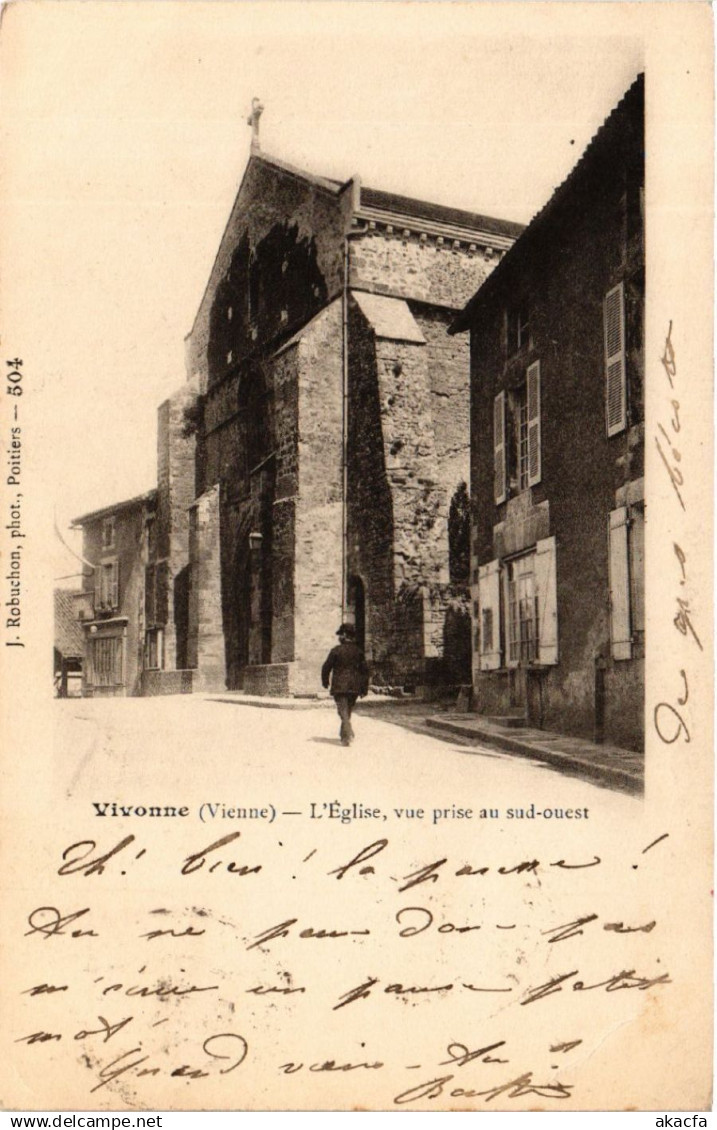 J. Robuchon, phot., Poitiers — 504
Vivonne (Vienne) — L'Église, vue prise au sud-ouest
Eh! bien! la paresse!
Tu ne peux donc pas
m'écrire un pauvre petit
mot!
Quand viens-tu?
De gros
www.delcampe.net
akacfa